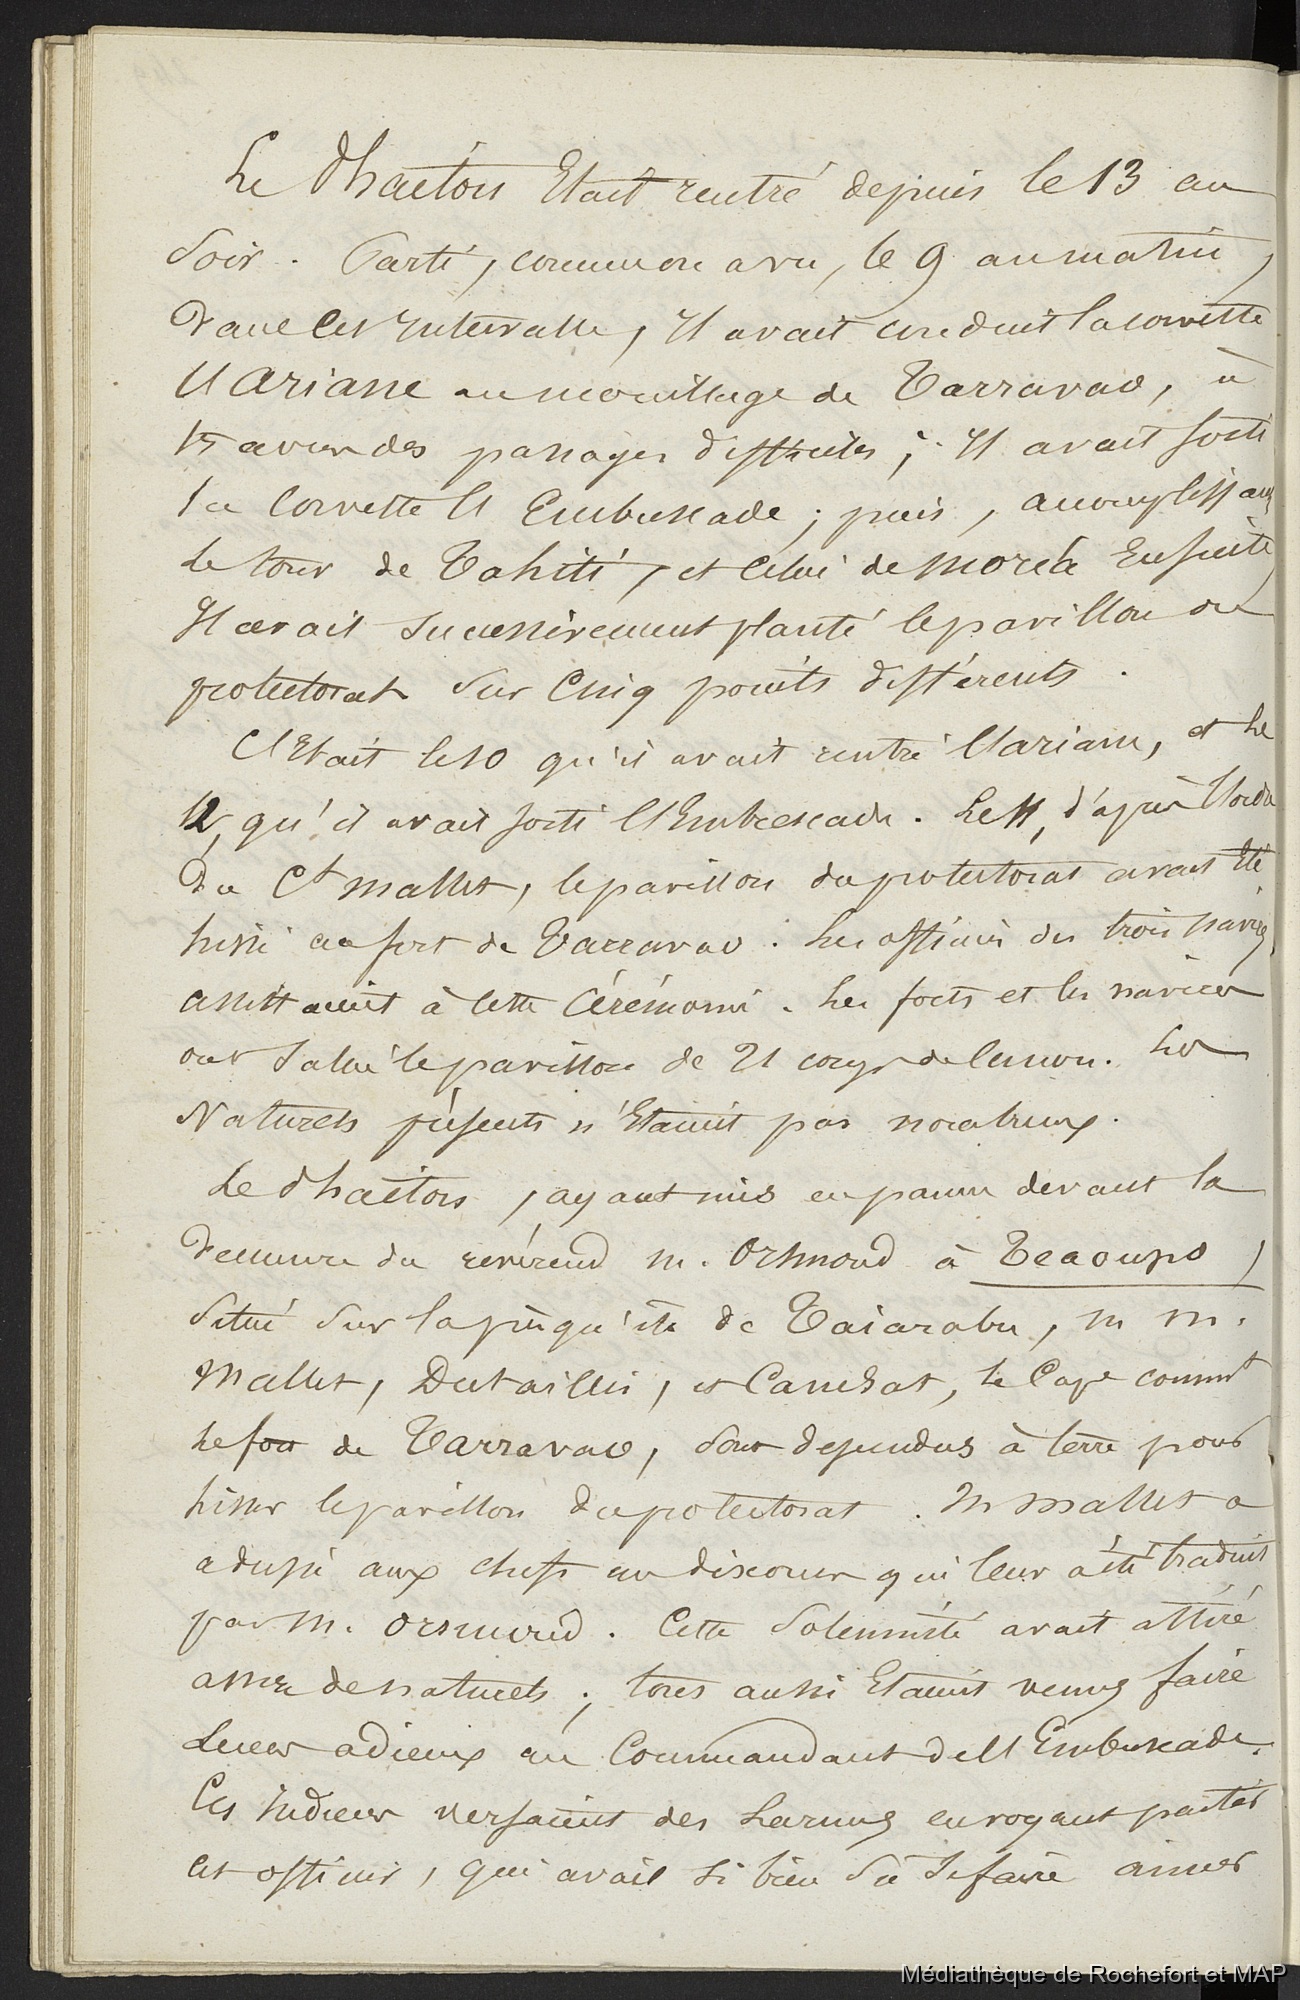 Le Phaéton Etait rentré depuis le 13 au
Soir. Parti, comme on a vu, le 9 au matin,
Dans cet Intervalle, Il avait conduit la corvette
l'Ariane au mouillage de Tarravao, à
travers des passages difficiles; Il avait sorti
la Corvette l'Embuscade; puis, accomplissant
Le tour de Tahiti, et celui de Moréa Ensuite,
Il avait Successivement planté le pavillon du
protectorat Sur Cinq points différents.
C'Etait le 10 qu'il avait rentré l'ariane, et le
12, qu'il avait sorti l'Embuscade. Le 11, d'après l'ordre
Du Ct Mallet, le pavillon du protectorat avait Eté
hissé au fort de Tarravao. Les officiers des trois navires
assistaient à cette Cérémonie. Les forts et les navires
ont Salué le pavillon de 21 coups de canon. Les
Naturels présents n'Etaient pas nombreux.
Le Phaéton, ayant mis en panne devant la
Demeure du révérend M. Orsmond à Teaoupo,
Situé Sur la presqu'ile de Taiarabu, M M.
Mallet, Dutaillis, et , le Cape commt
Le fort de Tarravao, Sont descendus à terre pour
hisser le pavillon du protectorat. M Mallet a
adressé aux chefs un discours qui leur a été traduit
par M. Orsmond. Cette Solennité avait attiré
assez de naturels; tous aussi Etaient venus faire
Leurs adieux au Commandant de l'Embuscade.
Ces Indiens versaient des Larmes en voyant partir
cet officier, qui avait Si bien Su Se faire aimer
Médiathèque de Rochefort et MAP